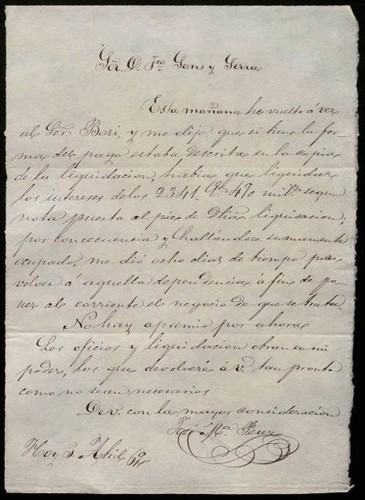 Sör. D. Fco Gons y Serra
Esta mañana he vuelto á ver
al Sör. Bori, y me dijo que si bien la for
ma del pago estaba descrita en la copia
de la liquidacion, habia que liquidar
los intereses de los 2341 470 mils segun
nota puesta al pie de Dhã liquisacion,
por concecuencia y hallandose sumamente
ocupado, me dió ocho dias de tiempo para
volver á aquella dependencia á fin de po
ner al corriente el negocio de que se trata.
No hay apremio por ahora
Los oficios y liquidacion obran en mi
poder, los que devolveré á V. tan pronto
como no sean necesarios
De V. con la mayor consideracion
Hoy 3 Abril 69